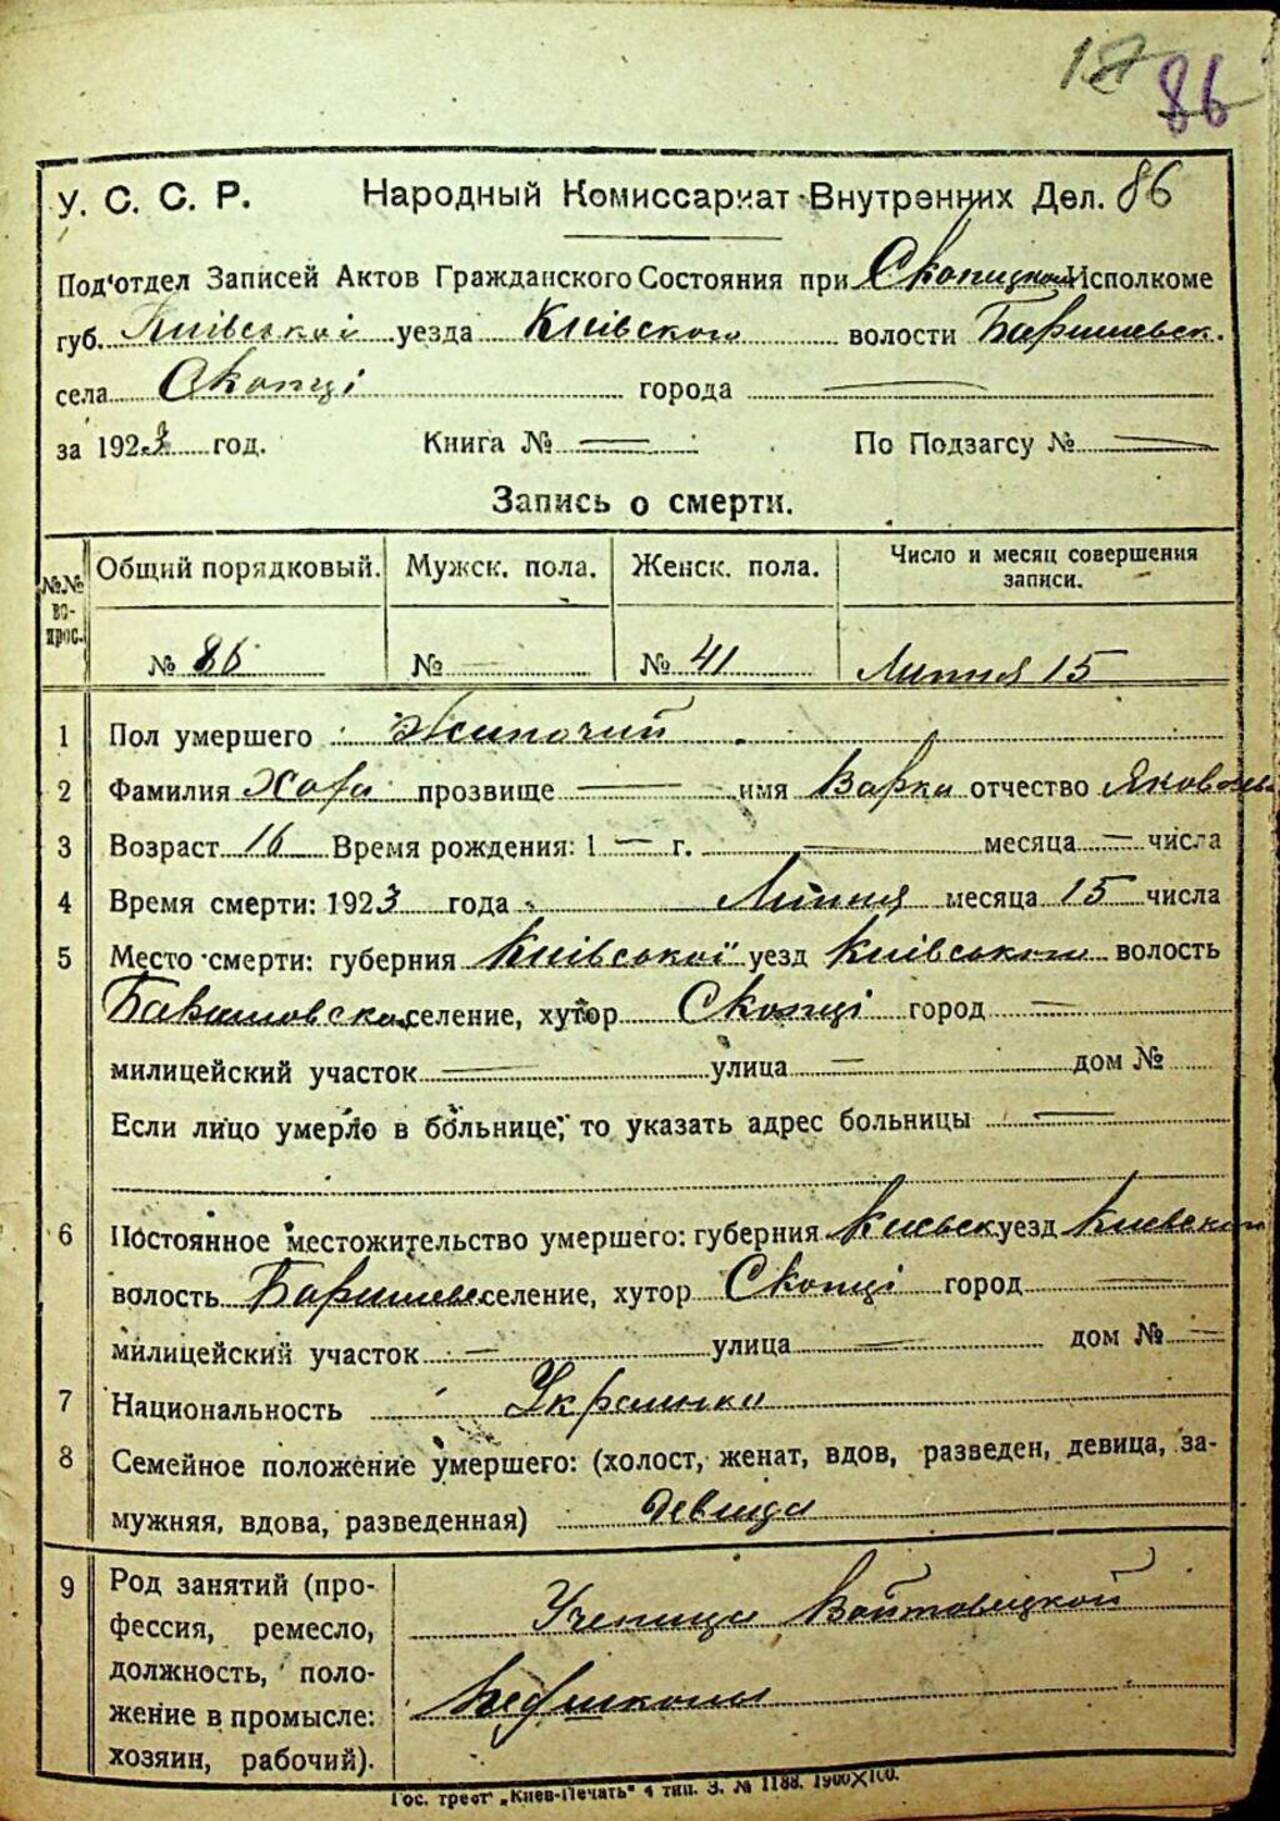 17 86
У. С. С. Р. Народный Комиссариат Внутренних Дел. 86
Под'отдел Записей Актов Гражданского Состояния при Скопицком Исполкоме
губ. Київської уезда Київского волости Баришевск.
села Скопці города —
за 1923 год. Книга № — По Подзагсу № —
Запись о смерти.
№№ во-прос. Общий порядковый. Мужск. пола. Женск. пола. Число и месяц совершения
записи.
№ 86 № — № 41 Липня 15
1 Пол умершего Жиночий
2 Фамилия прозвище — имя Варка отчество
3 Возраст 16 Время рождения: 1 — г. — месяца — числа
4 Время смерти: 1923 года Липня месяца 15 числа
5 Место смерти: губерния Київської уезд Київського волость
селение, хутор Скопці город —
милицейский участок — улица — дом №
Если лицо умерло в больнице, то указать адрес больницы —
6 Постоянное местожительство умершего: губерния Киевск уезд Киевского
волость Баришевс селение, хутор Скопці город —
милицейский участок — улица — дом № —
7 Национальность Украинка
8 Семейное положение умершего: (холост, женат, вдов, разведен, девица, за-
мужняя, вдова, разведенная) девица
9 Род занятий (про-
фессия, ремесло,
должность, поло-
жение в промысле:
хозяин, рабочий).
Ученица Войтовицкой
Гос. трест „Киев-Печать" 4 тип. З. № 1188. 1900X100.